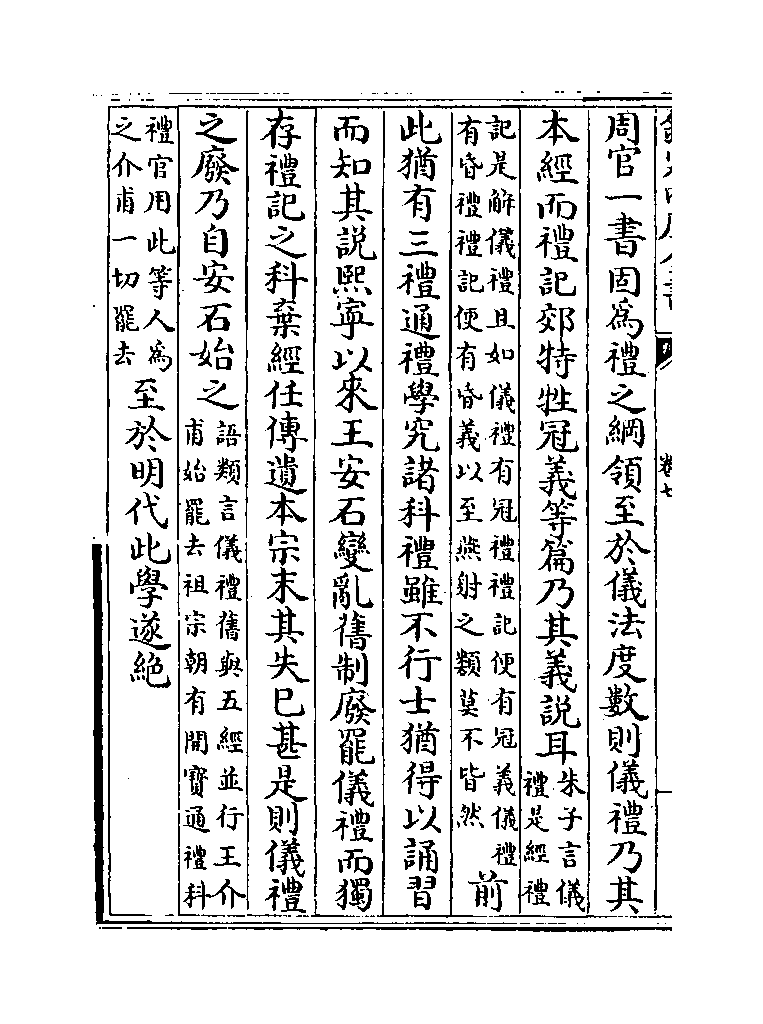 卷七
周官一書固爲禮之綱領至於儀法度數則儀禮乃其
本經而禮記郊特牲冠義等篇乃其義說耳
朱子言儀
禮是經禮
記是解儀禮且如儀禮有冠禮禮記便有冠義儀禮
有昏禮禮記便有昏義以至燕射之類莫不皆然
前
此猶有三禮通禮學究諸科禮雖不行士猶得以誦習
而知其說熙寧以來王安石變亂舊制廢罷儀禮而獨
存禮記之科棄經任傳遺本宗末其失已甚是則儀禮
之廢乃自安石始之
語類言儀禮舊與五經並行王介
甫始罷去祖宗朝有開寶通禮科
禮官用此等人爲
之介甫一切罷去
至於明代此學遂絶